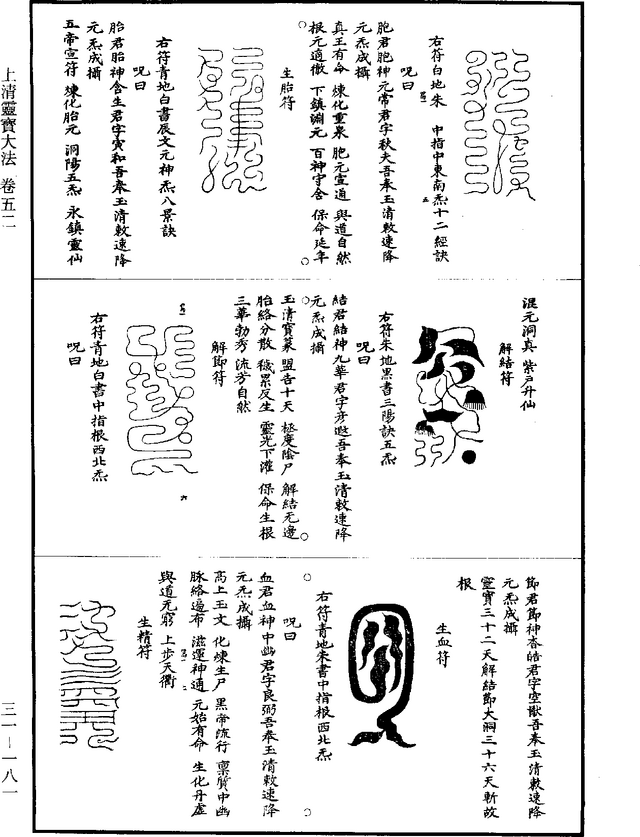 右符白地朱 中指中東南炁十二經訣
呪曰
胞君胞神元常君字秋夫吾奉玉清敕速降
元炁成攝
真王有命 煉化重泉 胞元宣通 與道自然
根元通徹 下鎮淵元 百神守舍 保命延年
生胎符
右符青地白書辰文元神炁八景訣
呪曰
胎君胎神含生君字寅和吾奉玉清敕速降
元炁成攝
五帝宣符 煉化胎元 洞陽五炁 永鎮靈仙
混元洞真 紫戶升仙
解結符
右符朱地黑書三陽訣五炁
呪曰
結君結神九華君字彥遐吾奉玉清敕速降
元炁成攝
玉清寶篆 盟告十天 極度陰尸 解結无邊
胎絡分散 穢累反生 靈光下灌 保命生根
三華勃秀 流芳自然
解節符
右符青地白書中指根西北炁
呪曰
節君節神杳皓君字空猷吾奉玉清敕速降
元炁成攝
靈寶三十二天解結節大洞三十六天斬故
根
生血符
右符青地朱書中指根西北炁
呪曰
血君血神中幽君字良弼吾奉玉清敕速降
元炁成攝
高上玉文 化煉生尸 黑帝流行 稟質中幽
脉絡遍布 滋運神通 元始有命 生化丹虛
與道无窮 上步天衢
生精符
上清靈寶大法 卷五二
三一—一八一